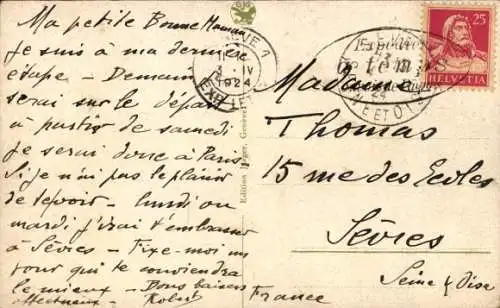 Ma petite Bonne Maman
je suis à ma dernière
étape - Demain
serai sur le départ
à partir de samedi
je serai donc à Paris
Si je n'ai pas le plaisir
de te voir - lundi ou
mardi j'irai t'embrasser
à Sèvres - Fixe-moi un
jour qui te conviendra
le mieux - Bons baisers
affectueux Robert
Edition Jaeger, Genève
GENÈVE 1
IV
1924
EXP. LET
25
HELVETIA
Madame
Thomas
15 rue des Ecoles
Sèvres
Seine & Oise
France